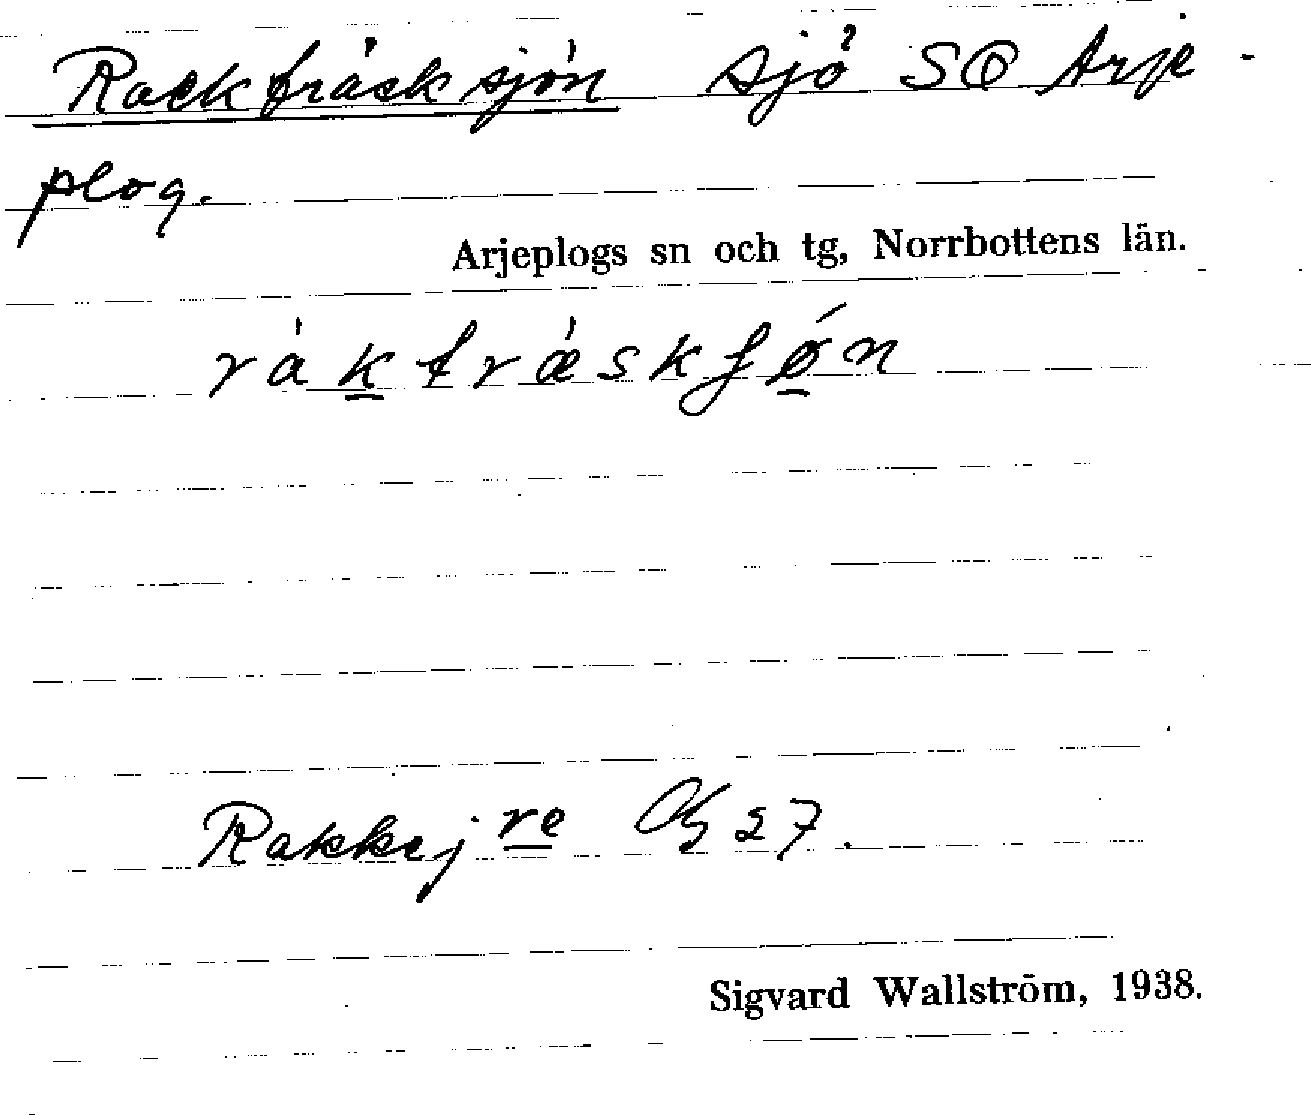 Rackträsksjön sjö SO Arje-
plog.
Arjeplogs sn och tg, Norrbottens län.
ràktræskʃøn
Rakkejre 27.
Sigvard Wallström, 1938.